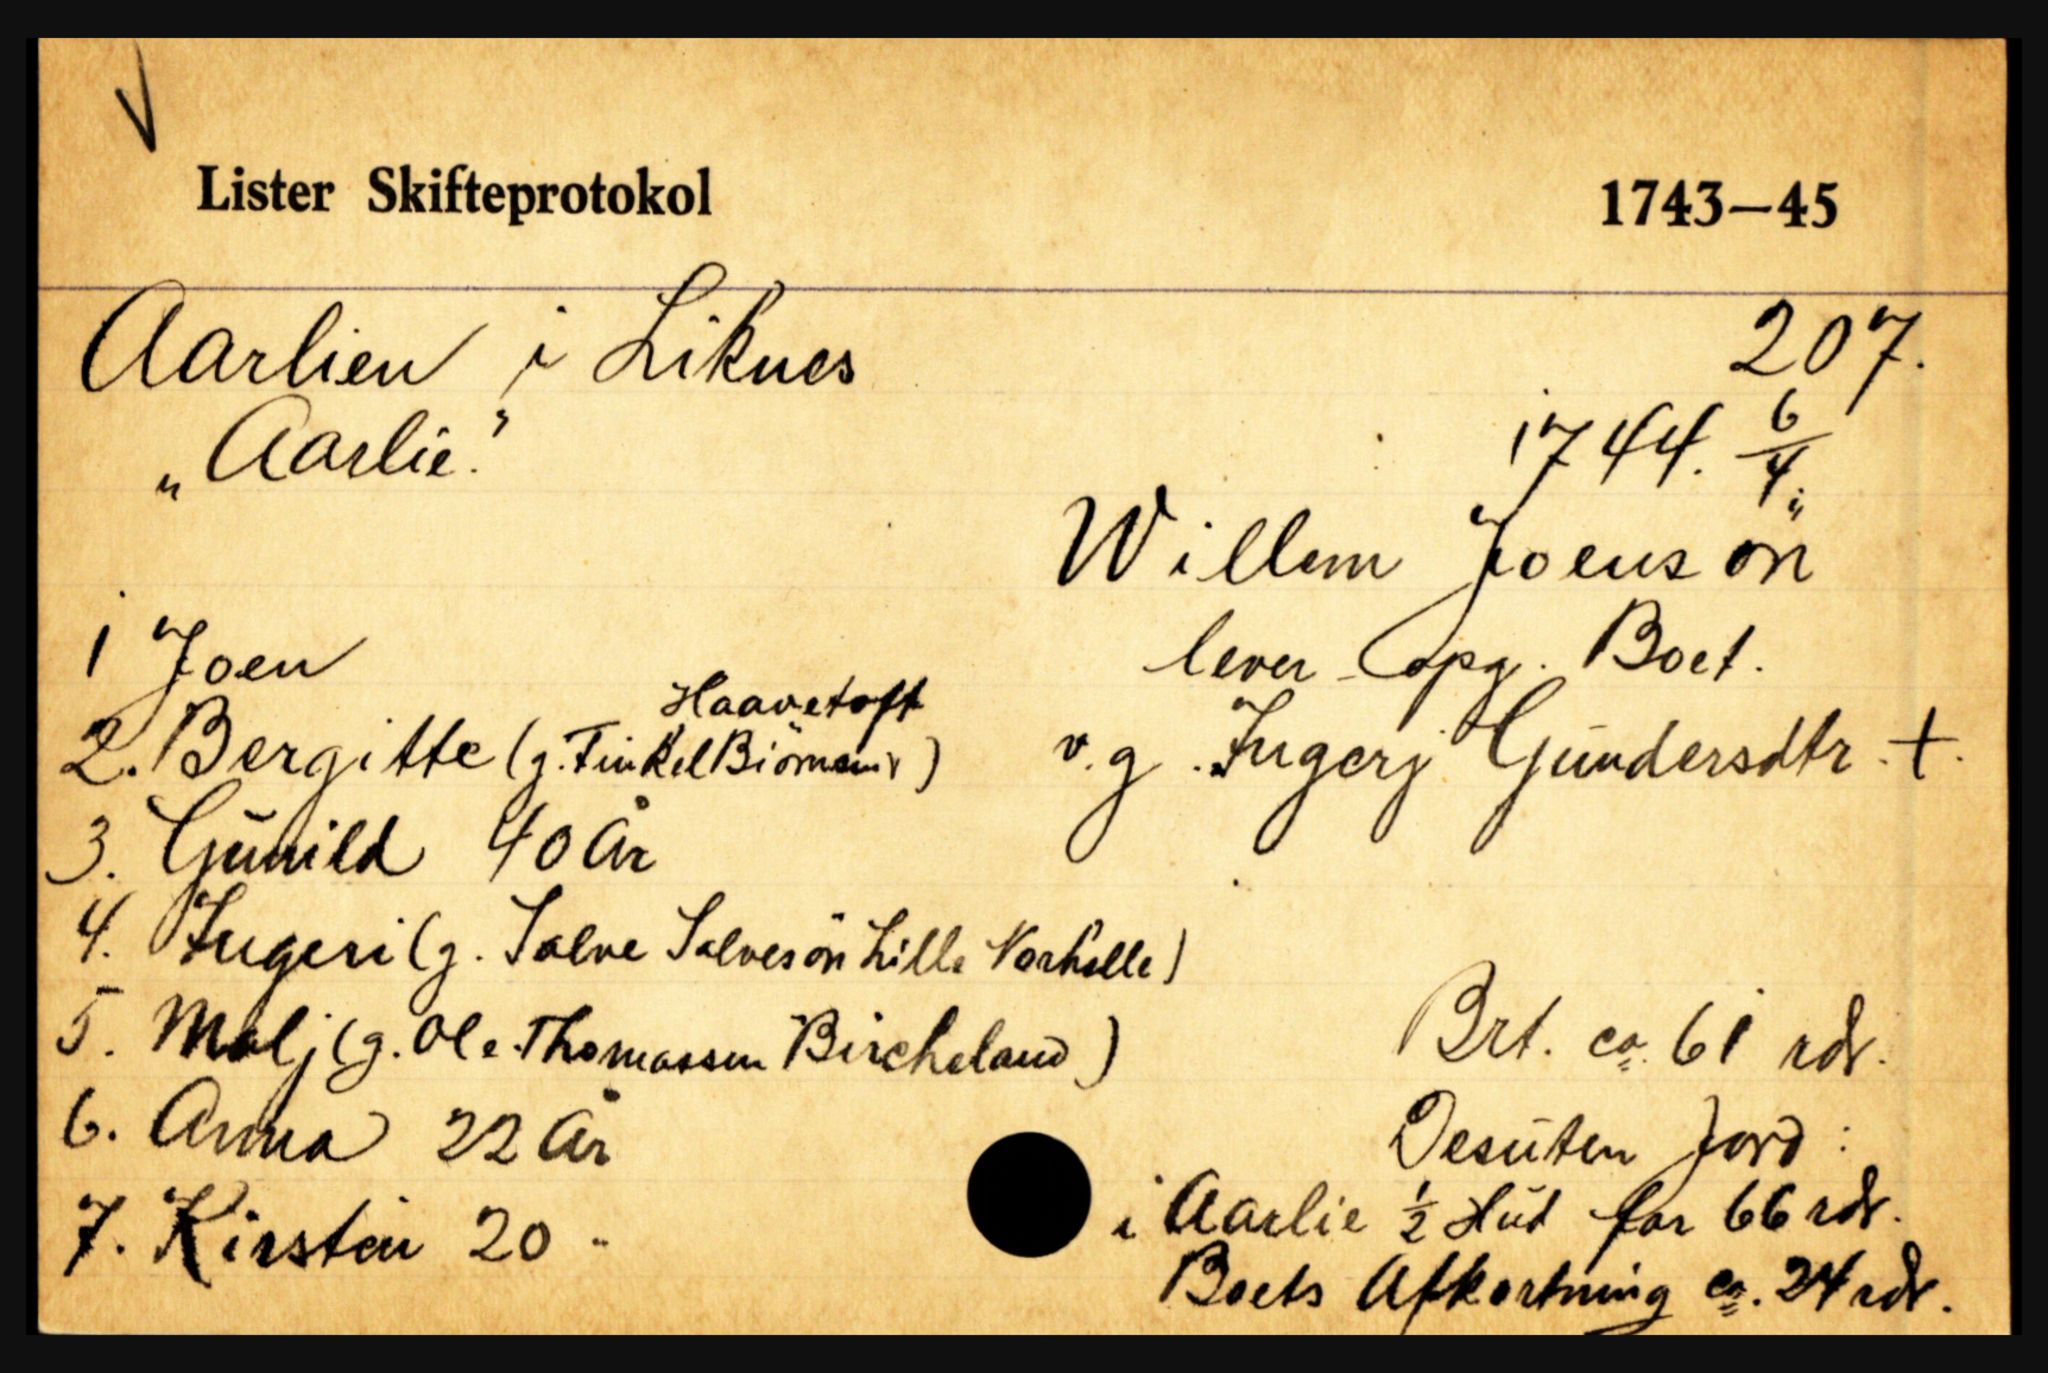 Lister Skifteprotokol 1743—45
Aarlien i Liknes 207.
„Aarlie." 1744. 6/4
Willem Joensön
1 Joen lever Opg. Boet.
Haavetoft
2. Bergitte (g. Tinkel) v. g. Ingerj Gundersdtr. +.
3. Gunild 40 År
4. Ingeri (g. Salve Salvesön Lille Narhelle)
5. Malj (g. Ole Thomassen Bircheland) Brt. ca. 61 rdr.
6. Anna 22 År Desuten Jord:
7. Kirsten 20 " i Aarlie ½ Hud for 66 rdr.
Boets Afkortning ca. 24 rdr.